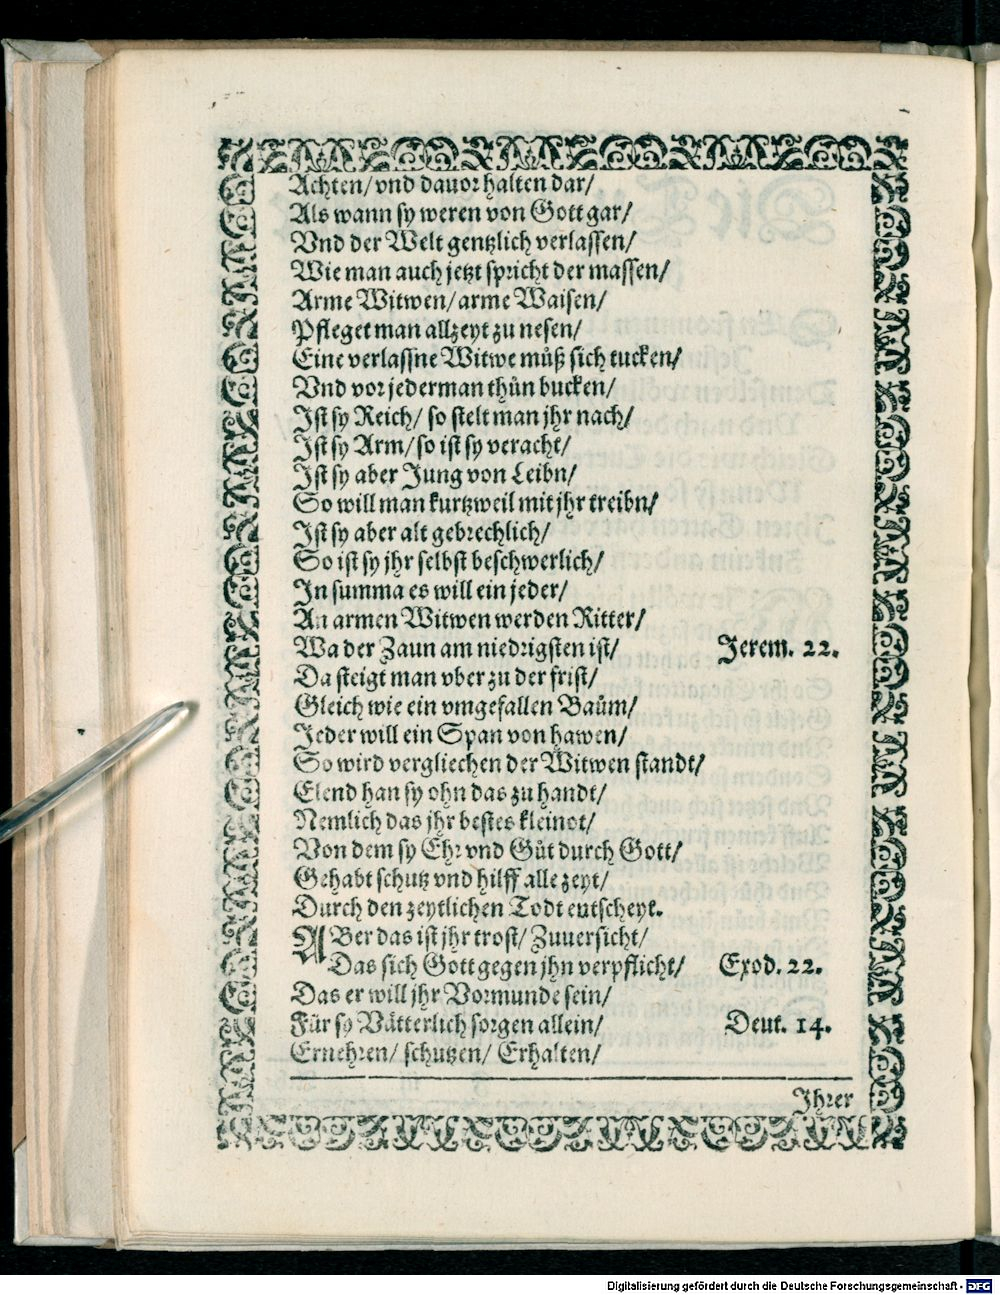 Achten/ vnd dauor halten dar/
Als wann sy weren von Gott gar/
Vnd der Welt gentzlich verlassen/
Wie man auch jetzt spricht der massen/
Arme Witwen/ arme Waisen/
Pfleget man allzeyt zu nesen/
Eine verlassne Witwe můß sich tucken/
Vnd vor jederman thůn bucken/
Ist sy Reich/ so stelt man jhr nach/
Ist sy Arm/ so ist sy veracht/
Ist sy aber Jung von Leibn/
So will man kurtzweil mit jhr treibn/
Ist sy aber alt gebrechlich/
So ist sy jhr selbst beschwerlich/
In summa es will ein jeder/
An armen Witwen werden Ritter/
Wa der Zaun am niedrigsten ist/ Jerem. 22.
Da steigt man vber zu der frist/
Gleich wie ein vmgefallen Baům/
Jeder will ein Span von hawen/
So wird vergliechen der Witwen standt/
Elend han sy ohn das zu handt/
Nemlich das jhr bestes kleinot/
Von dem sy Ehr vnd Gůt durch Gott/
Gehabt schutz vnd hilff alle zeyt/
Durch den zeytlichen Todt entscheyt.
ABer das ist jhr trost/ Zuuersicht/
Das sich Gott gegen jhn verpflicht/ Exod. 22.
Das er will jhr Vormunde sein/
Für sy Vätterlich sorgen allein/ Deut. 14.
Ernehren/ schutzen/ Erhalten/
Jhrer
Digitalisierung gefördert durch die Deutsche Forschungsgemeinschaft - DFG